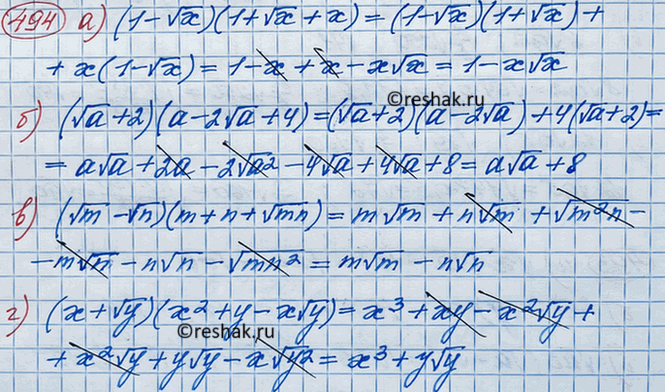 494 а) (1-√x)(1+√x+x)=(1-√x)(1+√x)+
+x(1-√x)=1-x+x-x√x=1-x√x
©reshak.ru
б) (√a+2)(a-2√a+4)=(√a+2)(a-2√a)+4(√a+2)=
=a√a+2a-2√a²-4√a+4√a+8=a√a+8
в) (√m-√n)(m+n+√mn)=m√m+n√m+√m²n-
-m√n-n√n-√mn²=m√m-n√n
г) (x+√y)(x²+y-x√y)=x³+xy-x²√y+
©reshak.ru
+x²√y+y√y-x√y²=x³+y√y